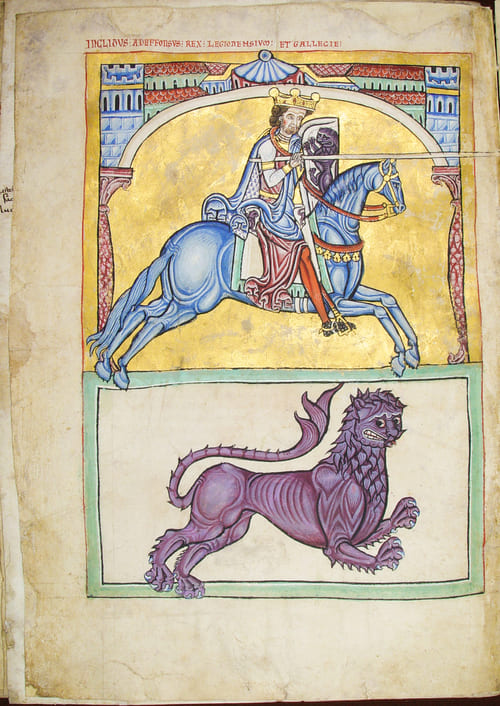 INCLIDUS: ADEFFONSVS: REX: LEGIONENSIVM: ET GALLECIE: